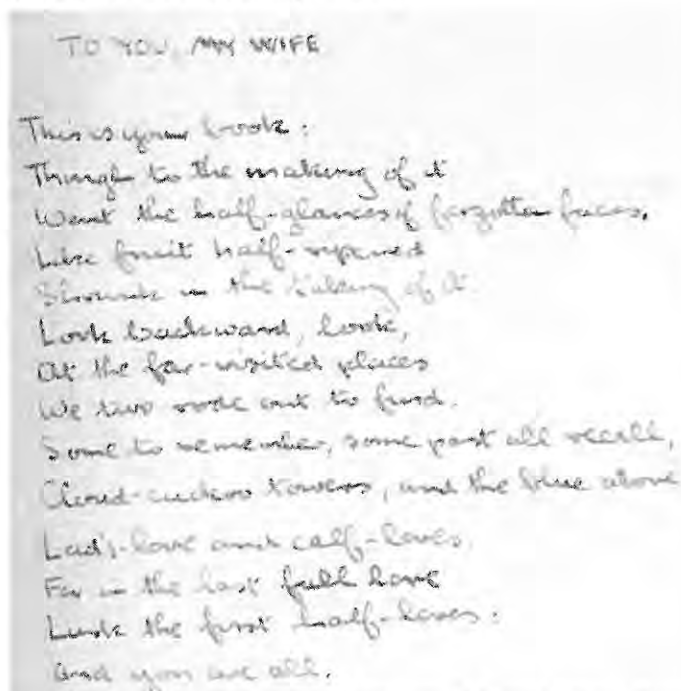 TO YOU, MY WIFE
This is your book:
Though to the making of it
Went the half-glances of forgotten faces,
Like fruit half-ripened
Shrunk in the taking of it.
Look backward, look,
At the far-visited places
We two rode out to find.
Some to remember, some past all recall,
Cloud-cuckoo towers, and the blue above
Lad's-love and calf-loves,
For in the last full love
Lurk the first half-loves:
And you are all.